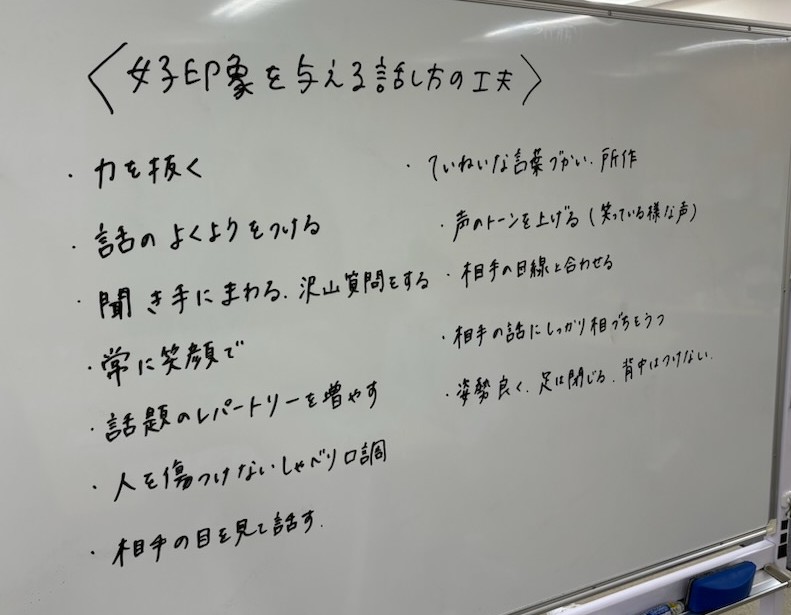 〈好印象を与える話し方の工夫〉
・力を抜く
・話のよくようをつける
・聞き手にまわる、沢山質問をする
・常に笑顔で
・話題のレパートリーを増やす
・人を傷つけないしゃべり口調
・相手の目を見て話す.
・ていねいな言葉づかい、所作
・声のトーンを上げる(笑っている様な声)
・相手の目線と合わせる
・相手の話にしっかり相づちをうつ
・姿勢良く、足は閉じる、背中はつけない.